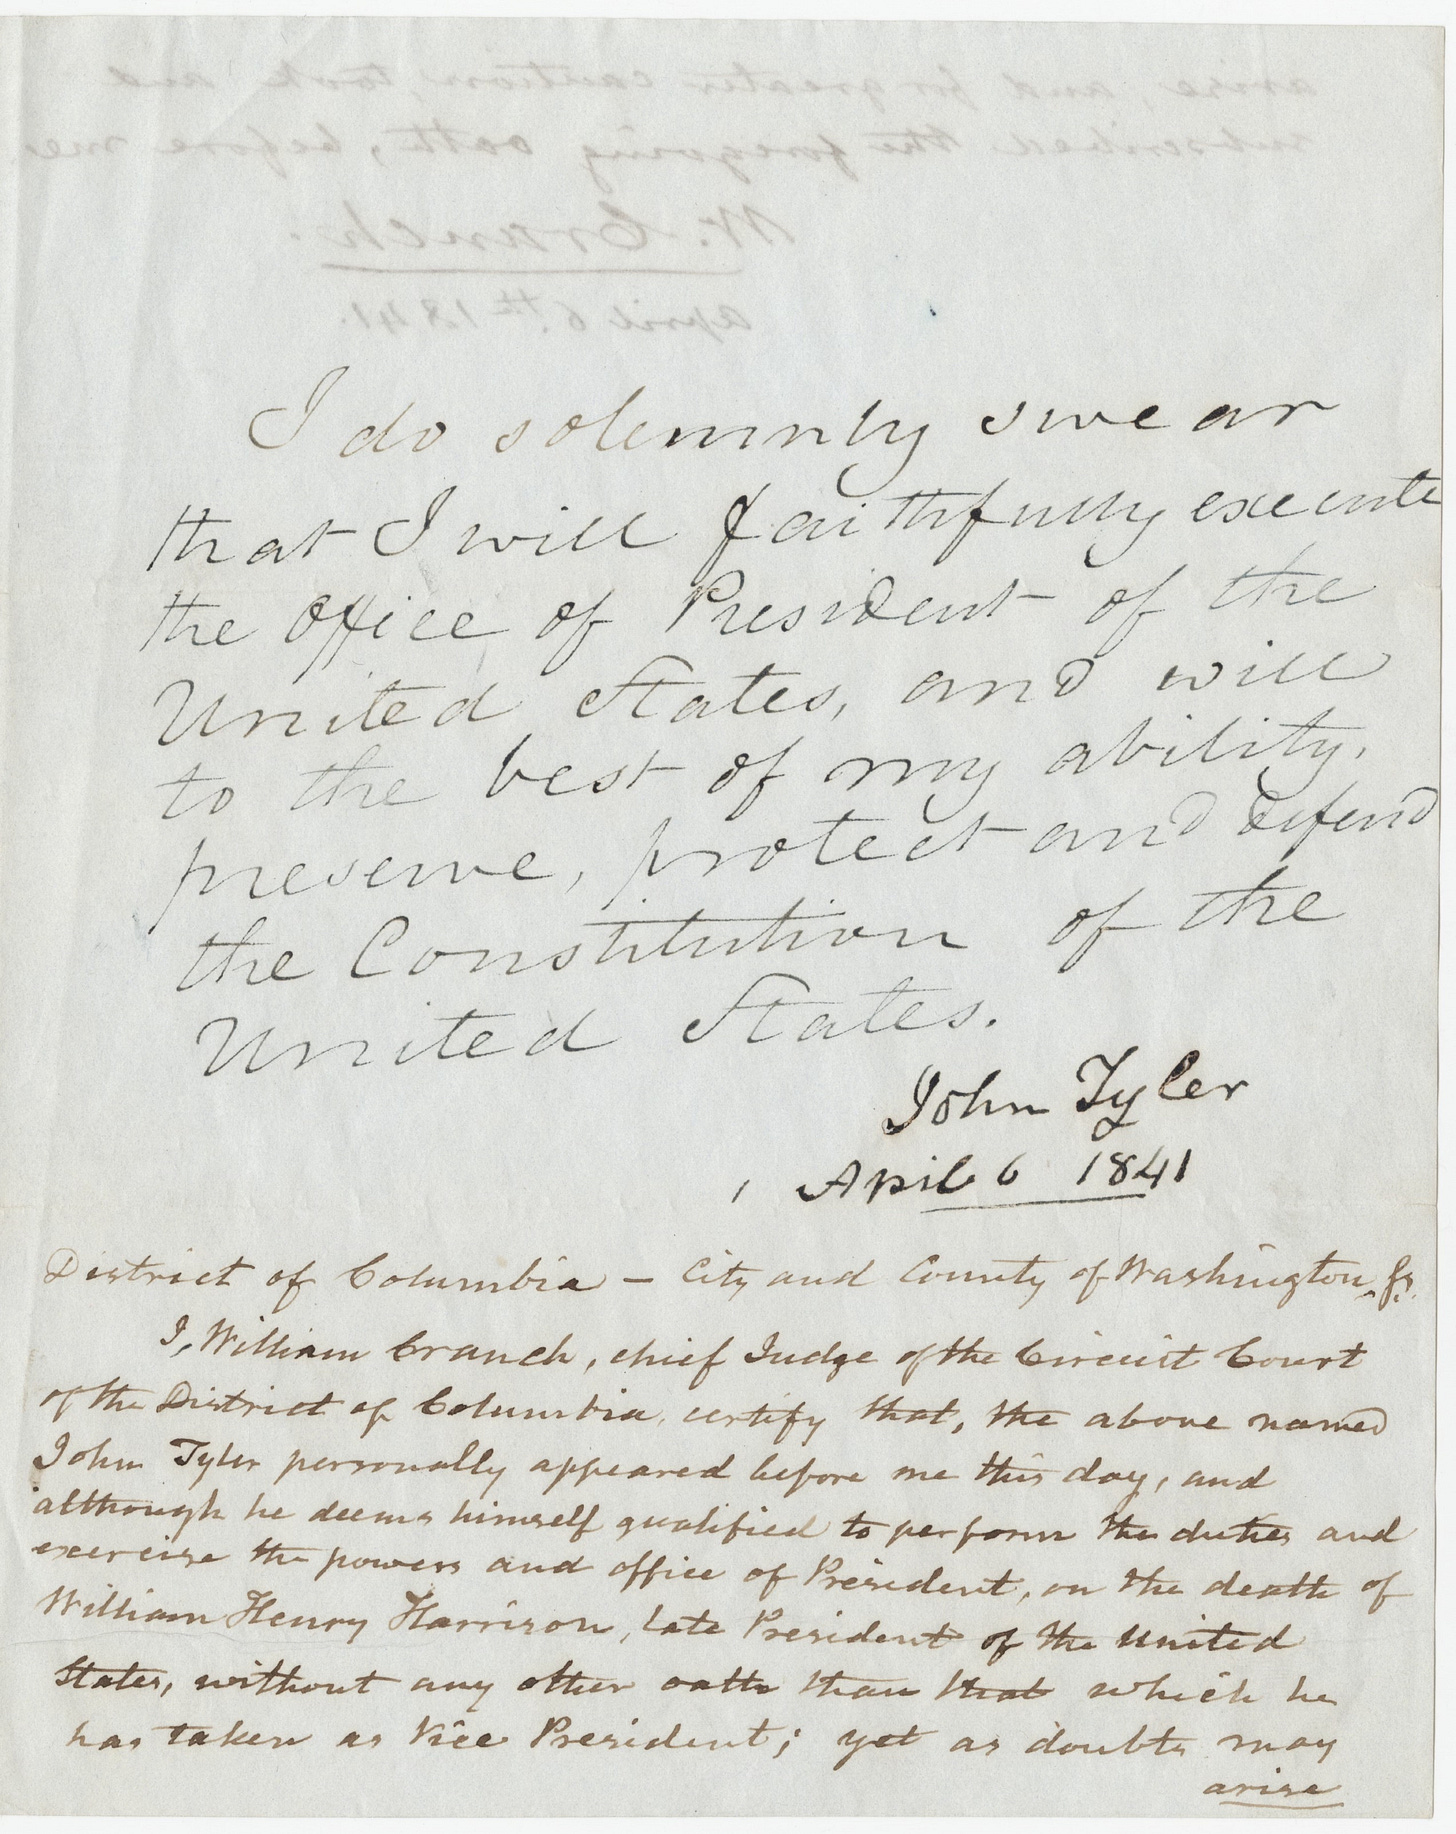 arise, and for greater caution, took and
subscribed the foregoing oath, before me
W. Cranch.
April 6th 1841.
I do solemnly swear
that I will faithfully execute
the office of President of the
United States, and will
to the best of my ability,
preserve, protect and defend
the Constitution of the
United States.
John Tyler
April 6 1841
District of Columbia – City and County of Washington, ss.
I, William Cranch, chief Judge of the Circuit Court
of the District of Columbia, certify that, the above named
John Tyler personally appeared before me this day, and
although he deems himself qualified to perform the duties and
exercise the powers and office of President, on the death of
William Henry Harrison, late President of the United
States, without any other oath than that which he
has taken as Vice President; yet as doubts may
arise